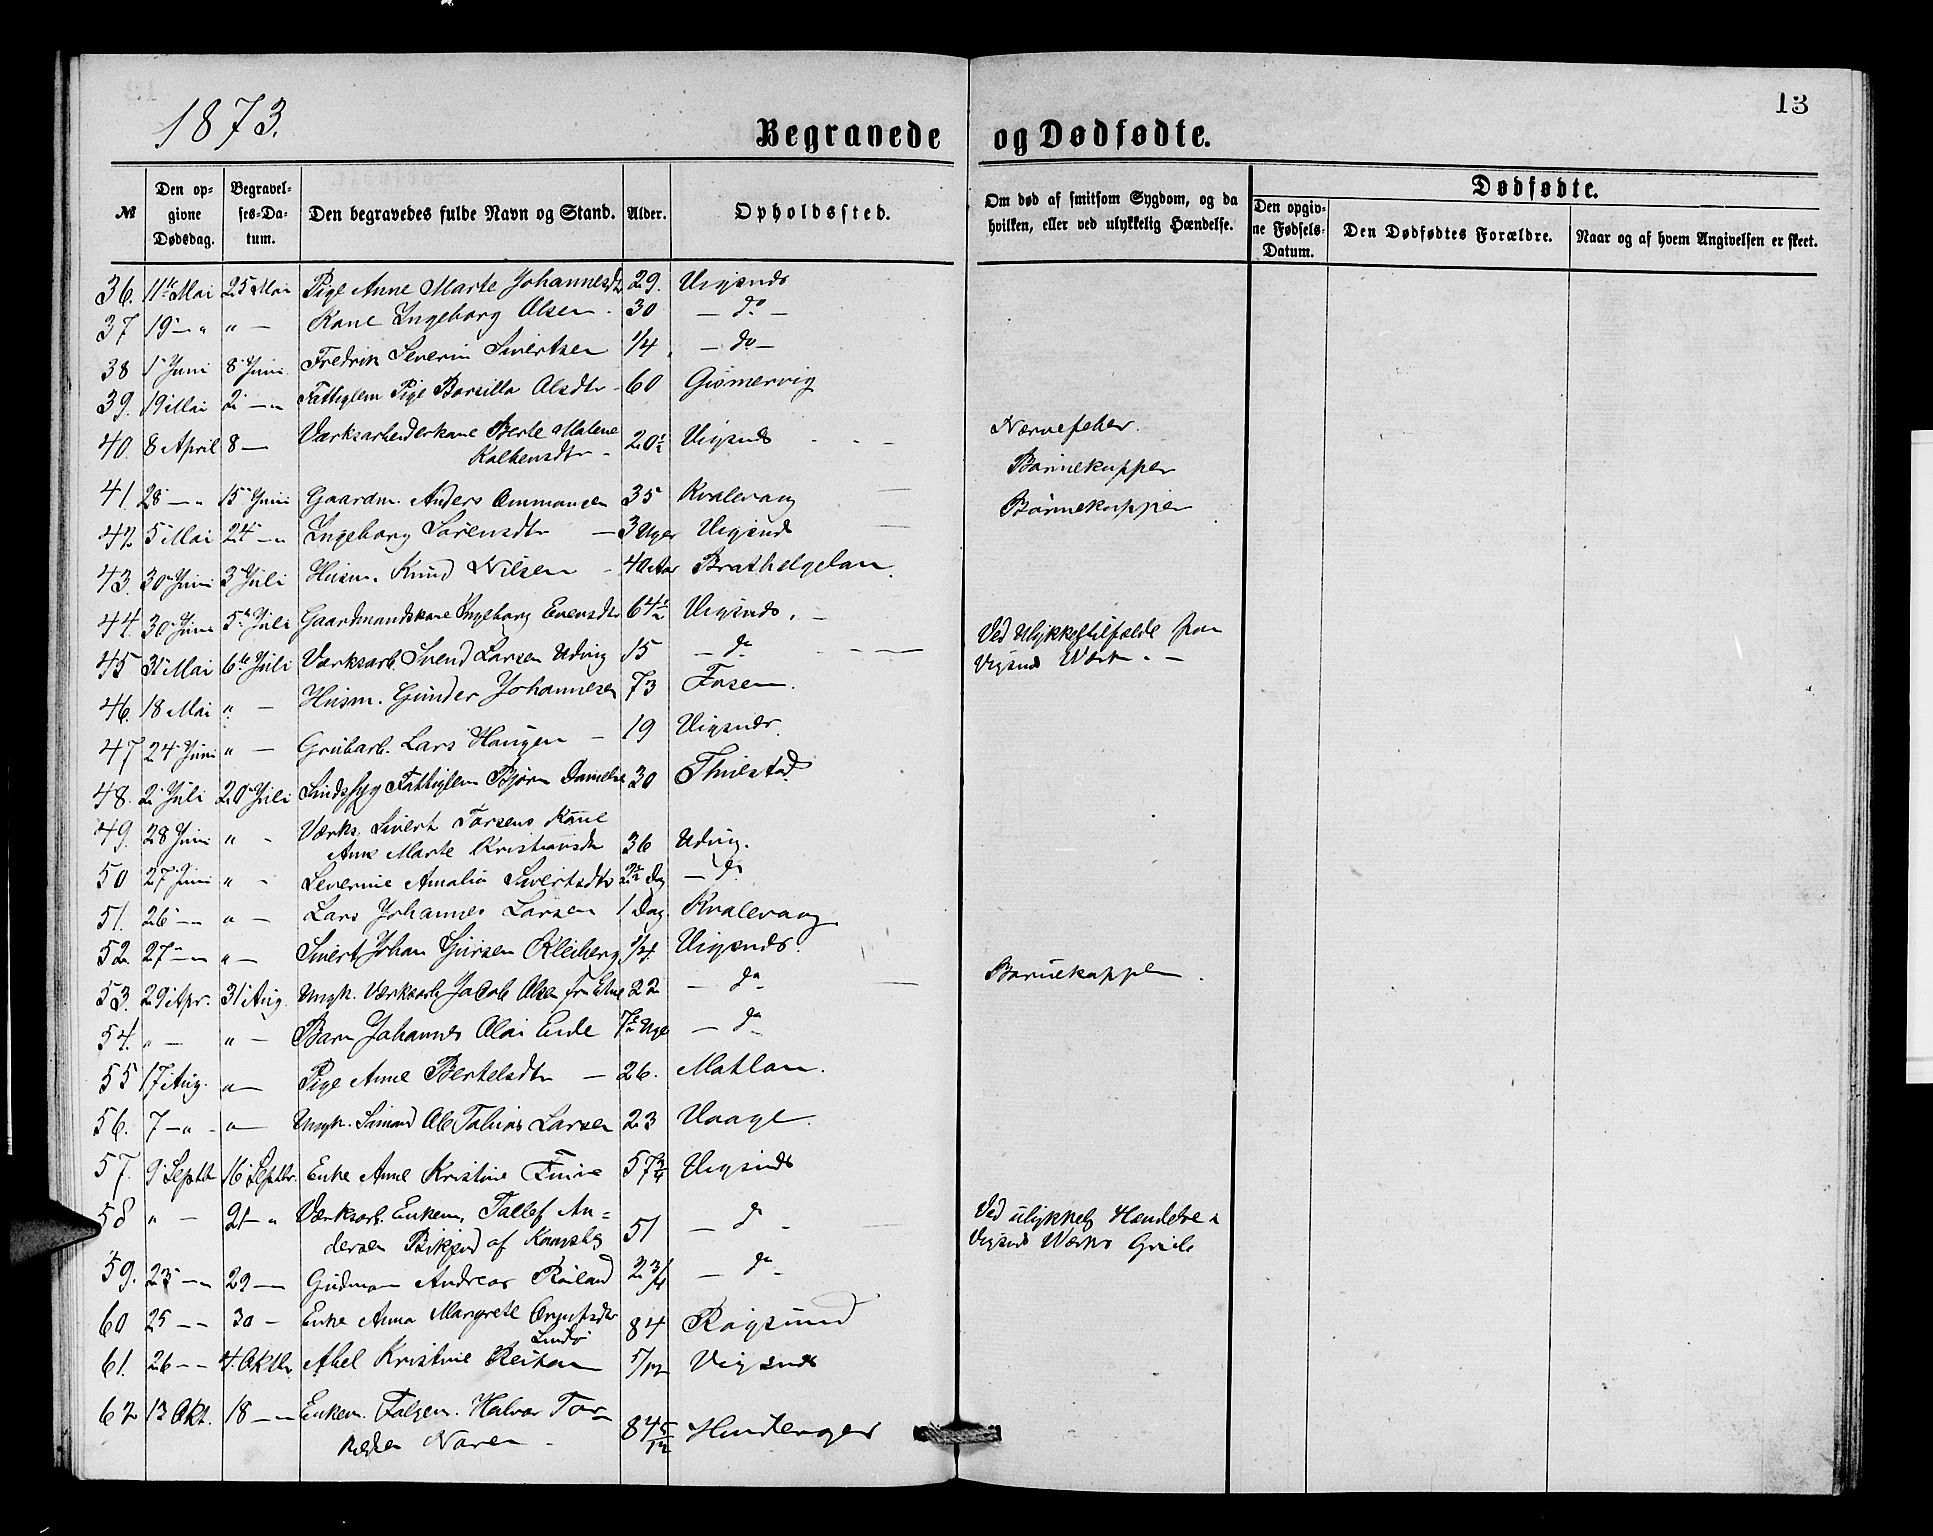 1873.
13
Begravede og Dødfødte.
№
Den opgivne Dødsdag.
Begravelses-Datum.
Den begravedes fulde Navn og Stand.
Alder.
Opholdssted.
Om død af smitsom Sygdom, og da hvilken, eller ved ulykkelig Hændelse.
Dødfødte.
Den opgivne Fødsels-Datum.
Den Dødfødtes Forældre.
Naar og af hvem Angivelsen er skeet.
36. 11te Mai 25 Mai Pige Anne Marte Johannesdtr 29. Vigsnds
37 19 — " " — Kone Ingeborg Olsen. 30 — do —
38 1 Juni 8 Juni Fredrik Severin Sivertsen 1/4 — do —
39. 19 Mai 2 — " Fattiglem Pige Barsilla Olsdtr 60 Gismervig
40. 8 April 8 — Værksarbeiderkone Berte Malene 20½ Vigsnds Nervefeber.
Børnekopper
41. 28 — " 15 Juni Gaardm. Anders Ammonsen 35 Kvalevaag Børnekopper
42. 5 Mai 24 — " Ingeborg Sørensdtr — 3 Uger Vigsnds
43. 30 Juni 3 Juli Husm. Knud Nilsen — 40 Aar
44. 30 Juni 5te Juli Gaardmandskone Ingeborg Evensdtr 64½ Vigsnds. —
45 31 Mai 6te Juli Værksarb. Svend Larsen Udvig 15 — do Ved Ulykkestilfælde paa
Vigsnds Værk. —
46. 18 Mai " — Husm. Gunder Johannesen 73 Fosen.
47 24 Juni " — Grubarb. Lars Haugen — 19 Vigsnds.
48. 2 Juli 20 Juli Sindssyg Fattiglem Bjørn 30
49. 28 Juni " — Værks. Sivert Torsens Kone
Anne Marte Kristiansdtr 36 Udvig.
50 27 Juni " — Severine Amalia Sivertsdtr — do
51. 26 — " " — Lars Johannes Larsen 1 Dag. Kvalevaag
52. 27 — " " — Sivert Johan Kleiberg 1/4 Vigsnds.
53. 29 Apr. 31 Aug. Ungk. Værksarb. Jacob Olsen fra Etne 22 — do Børnekopper.
54. " — " — Barn Johannes Olai — do
55 17 Aug. " — Pige Anne Bertelsdtr — 26. Matland.
56. 7 — " " — Ungk. Ole Tobias Larsen 23 Vaage.
57. 9 Septbr 16 Septbr. Enke Anne Kristine 57¾ Vigsnds
58 " — 21 — " Værksarb. Enkem. Tallef An=
dersen 51 — do — Ved ulykkelig Hændelse i
Vigsnds Værks Grube
59. 23 — " 29 — Gudmon Andreas Røiland 2¾ — do
60 25 — — 30 — Enke Anna Margrete 84 Røgsund
61. 26 — — 4. Oktbr. Abel Kristine 5/12 Vigsnds
62 13 Okt. 18 — " Enkem. Halvor Tor=
84 5/12